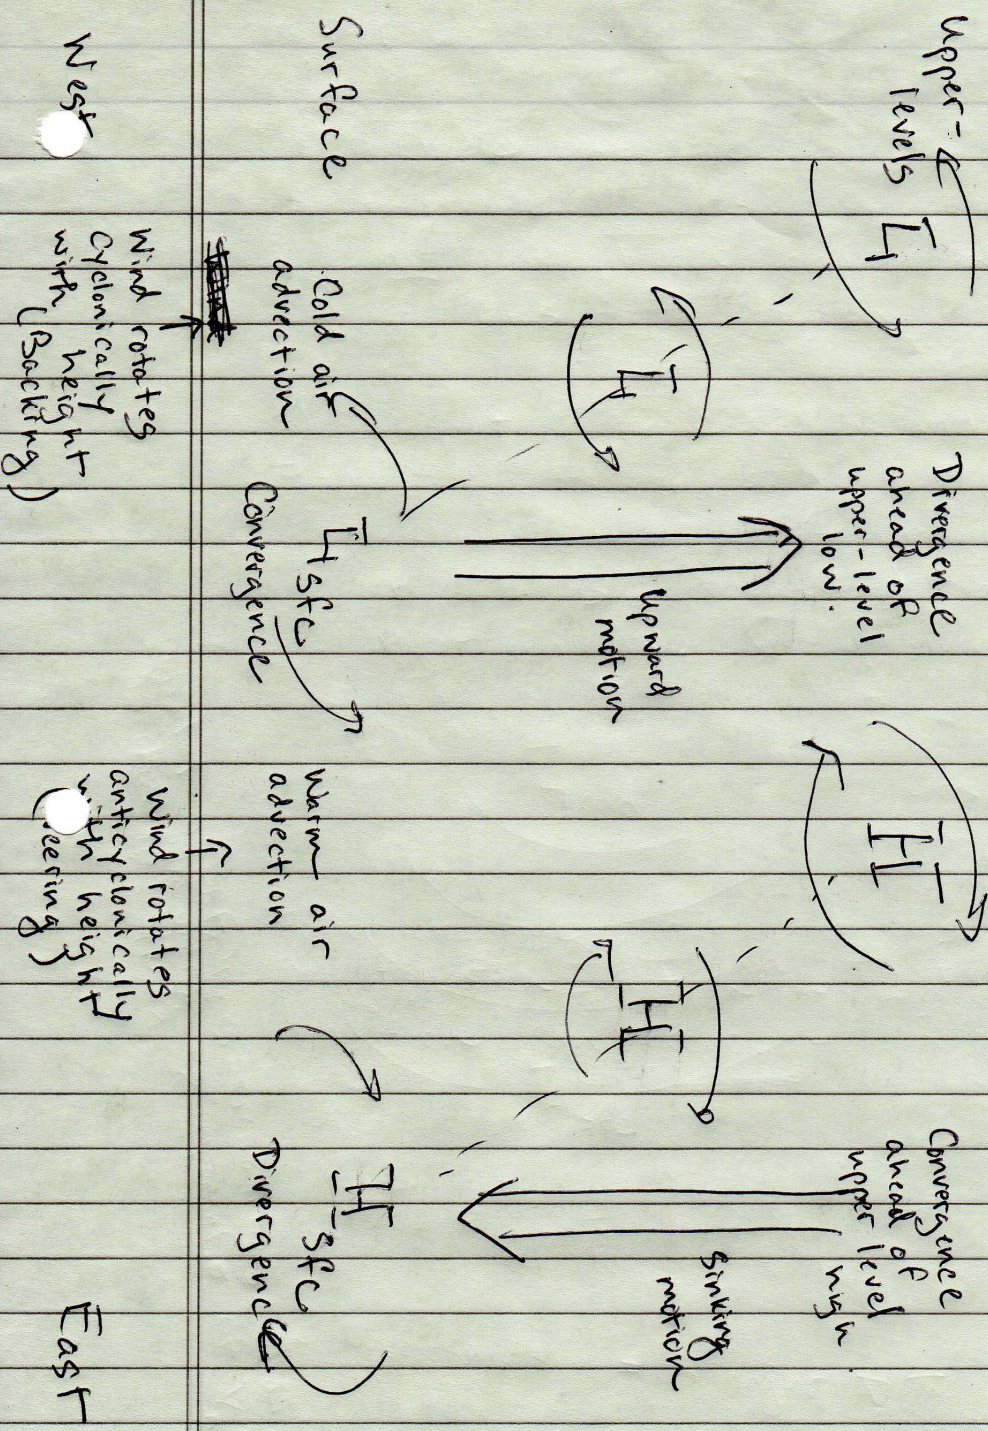 Upper-
levels
L
Divergence
ahead of
upper-level
low.
H
Convergence
ahead of
upper level
high.
L
Upward
motion
H
Sinking
motion
Surface
Cold air
advection
L sfc
Convergence
Warm air
advection
H sfc
Divergence
West
Wind rotates
cyclonically
with height
(Backing)
Wind rotates
anticyclonically
with height
(veering)
East